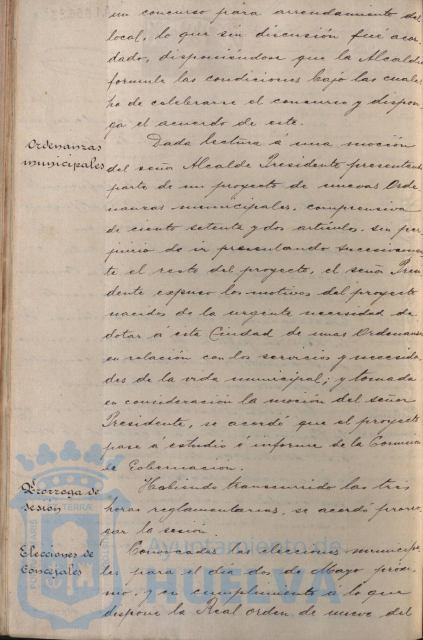 un concurso para arrendamiento del
local, lo que sin discusión fué acor-
dado, disponiéndose que la Alcaldía
formule las condiciones bajo las cuales
ha de celebrarse el concurso y dispon-
ga el acuerdo de este.
Ordenanzas
municipales
Dada lectura á una moción
del señor Alcalde Presidente presentando
parte de un proyecto de nuevas Orde
nanzas municipales, comprensiva
de ciento setenta y dos artículos, sin per
juicio de ir presentando sucesivamen
te el resto del proyecto, el señor Presi
dente expuso los motivos del proyecto
nacidos de la urgente necesidad de
dotar á esta Ciudad de unas Ordenanzas
en relación con los servicios y necesida
des de la vida municipal; y tomada
en consideración la moción del señor
Presidente, se acordó que el proyecto
pase á estudio é informe de la Comisión
de Gobernacion.
Prórroga de
sesión
Habiendo transcurrido las tres
horas reglamentarias, se acordó prorro
gar la sesión.
Elecciones de
Concejales
Convocadas las elecciones municipa
les para el día dos de Mayo próxi
mo, y en cumplimiento á lo que
dispone la Real orden de nueve del
Ayuntamiento de
HUELVA